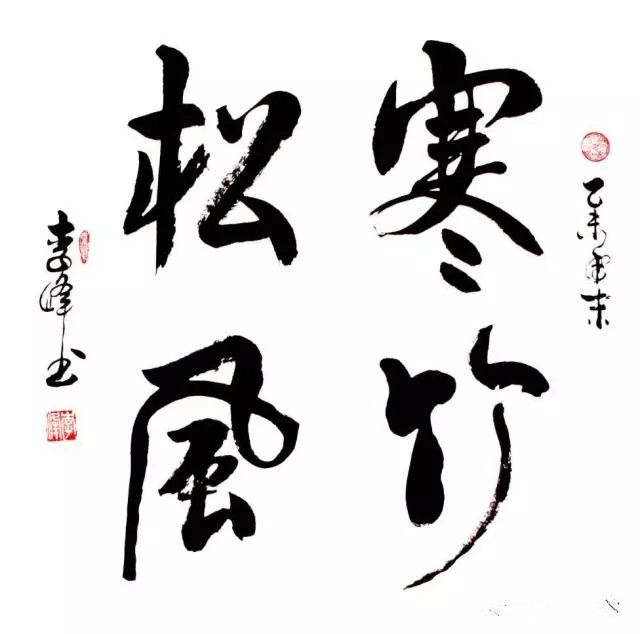 乙未末
寒竹
松風
李峰书